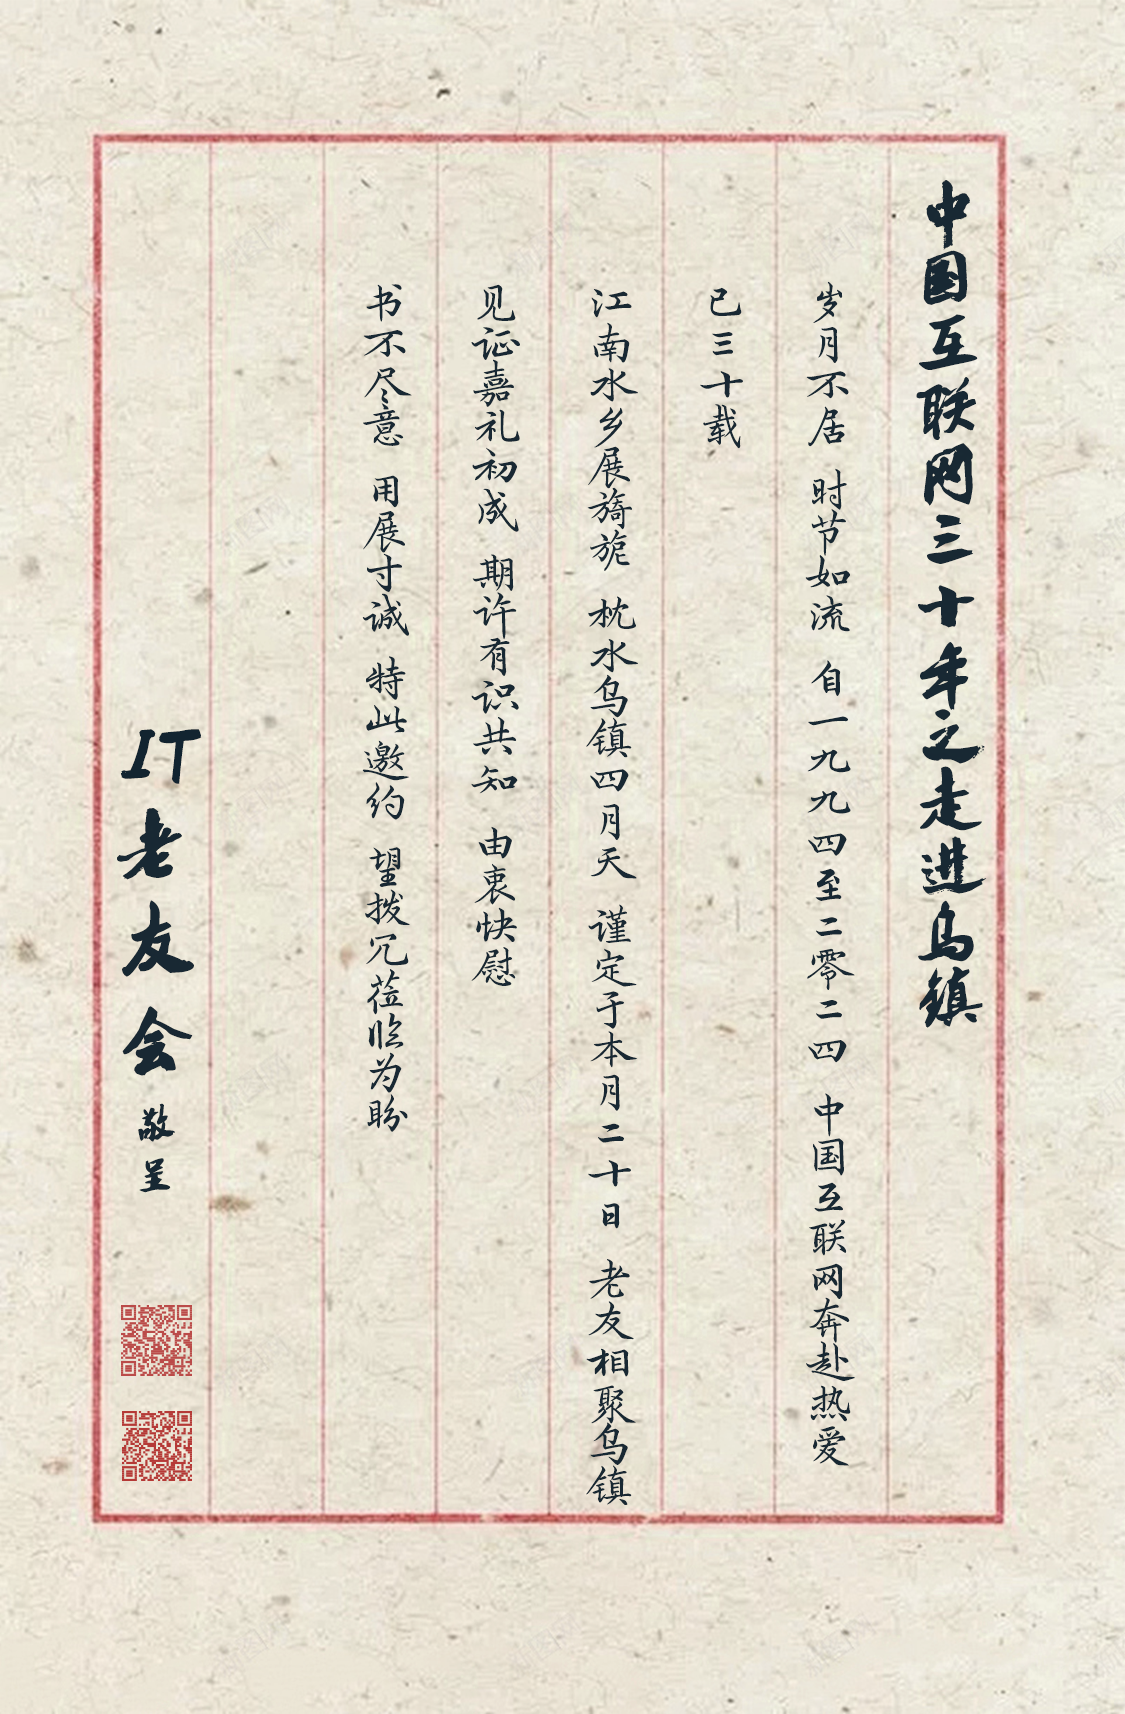 中国互联网三十年之走进乌镇
岁月不居 时节如流 自一九九四至二零二四 中国互联网奔赴热爱
已三十载
江南水乡展旖旎 枕水乌镇四月天 谨定于本月二十日 老友相聚乌镇
见证嘉礼初成 期许有识共知 由衷快慰
书不尽意 用展寸诚 特此邀约 望拨冗莅临为盼
IT老友会 敬呈